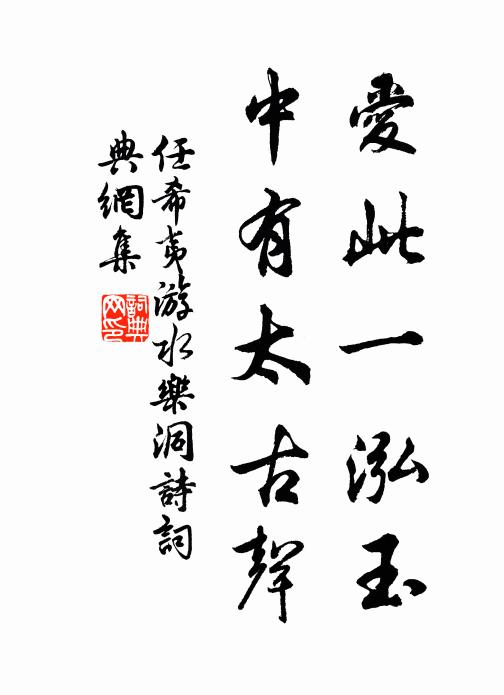 愛此一泓玉
中有太古聲
任希夷游水樂洞詩詞
典網集
詞典網印